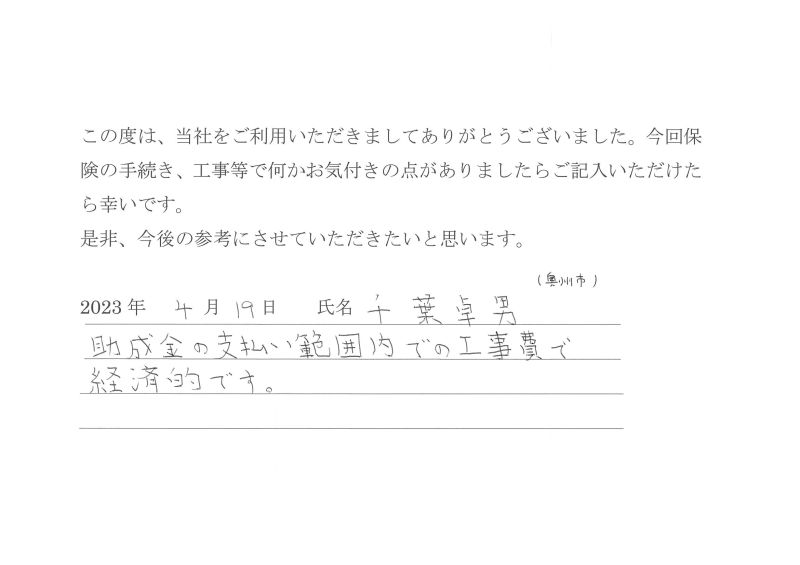 この度は、当社をご利用いただきましてありがとうございました。今回保
険の手続き、工事等で何かお気付きの点がありましたらご記入いただけた
ら幸いです。
是非、今後の参考にさせていただきたいと思います。
(奥州市)
2023年 4月 19日 氏名 千葉卓男
助成金の支払い範囲内での工事費で
経済的です。